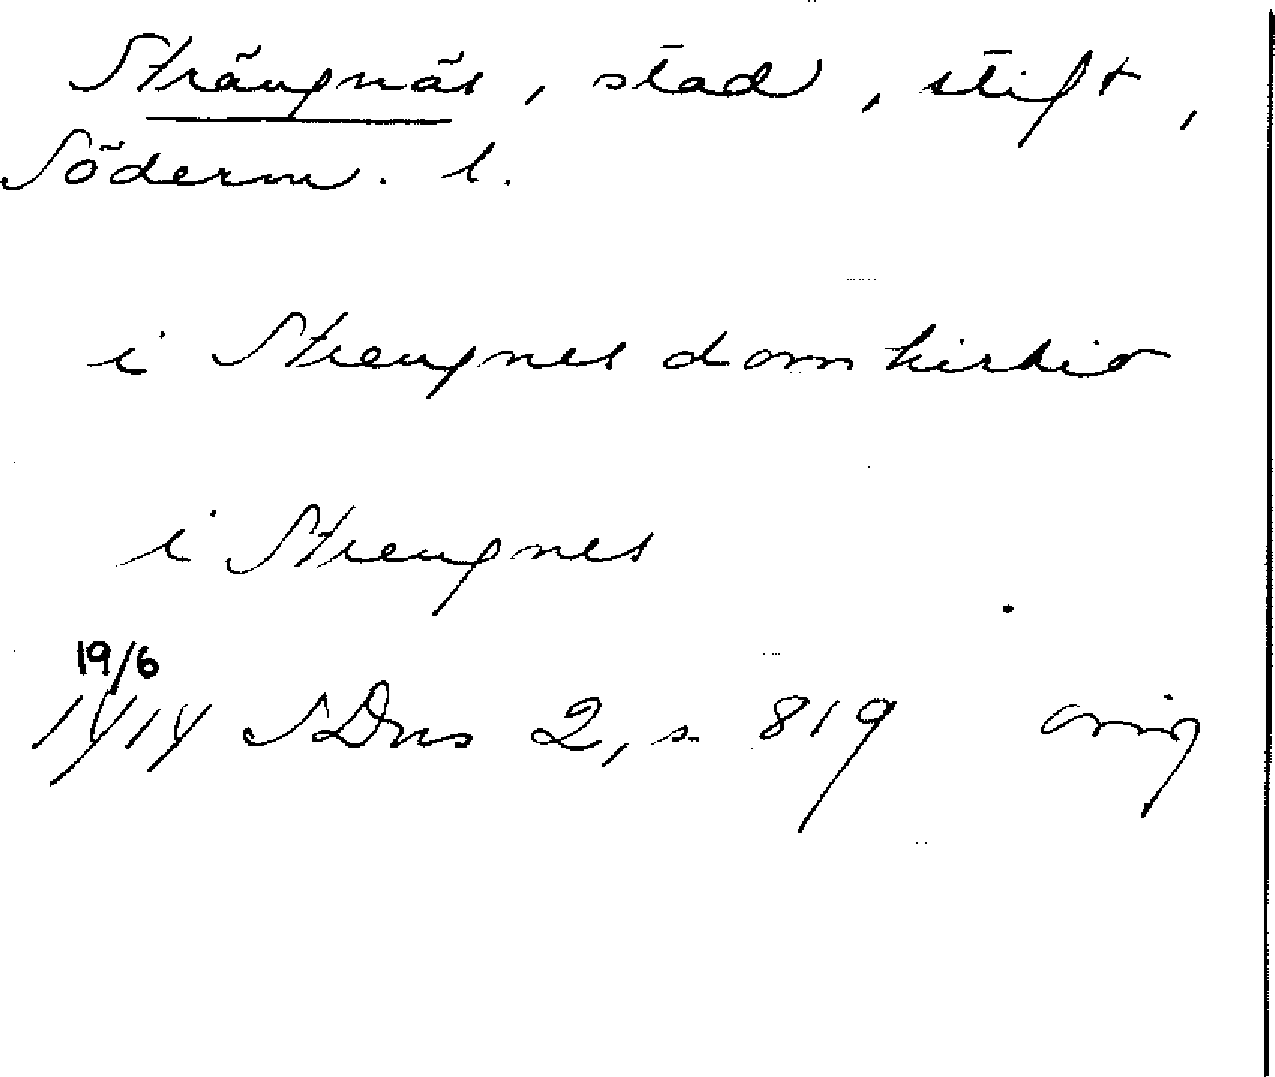 Strängnäs, stad, stift,
Söderm. l.
i Strengnes domkirkio
i Strengnes
19/6
1414 SDns 2, s. 819 orig